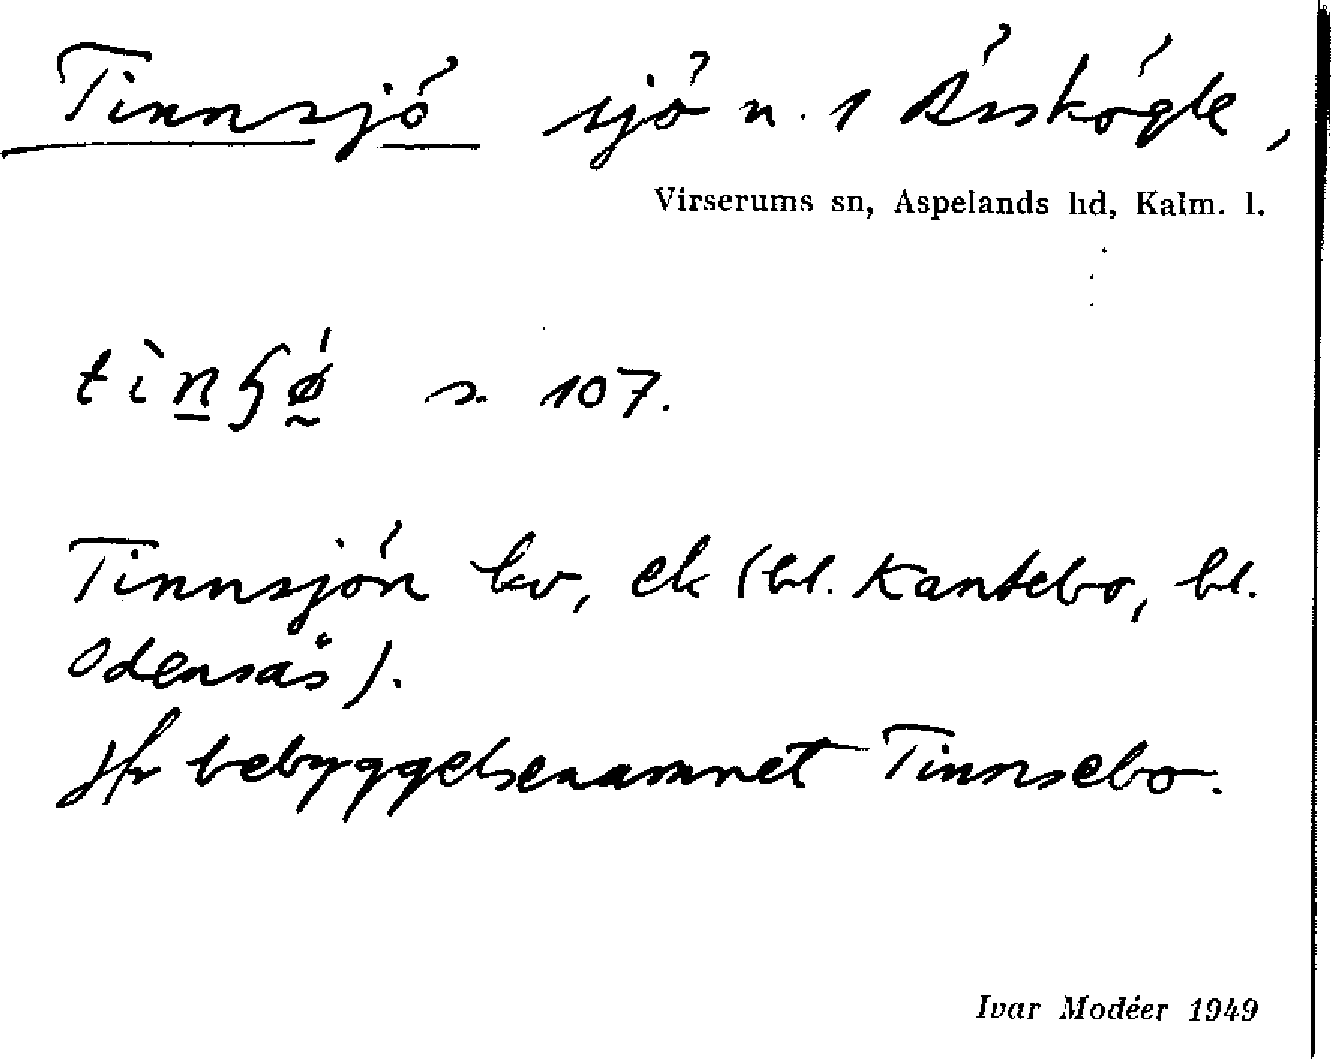 Tinnsjö sjö n. 1 Åsskögle,
Virserums sn, Aspelands hd, Kalm. l.
s. 107.
Tinnsjön kv, ek (bl. Kantebo, bl.
Odensås).
jfr bebyggelsenamnet Tinnsebo.
Ivar Modéer 1949